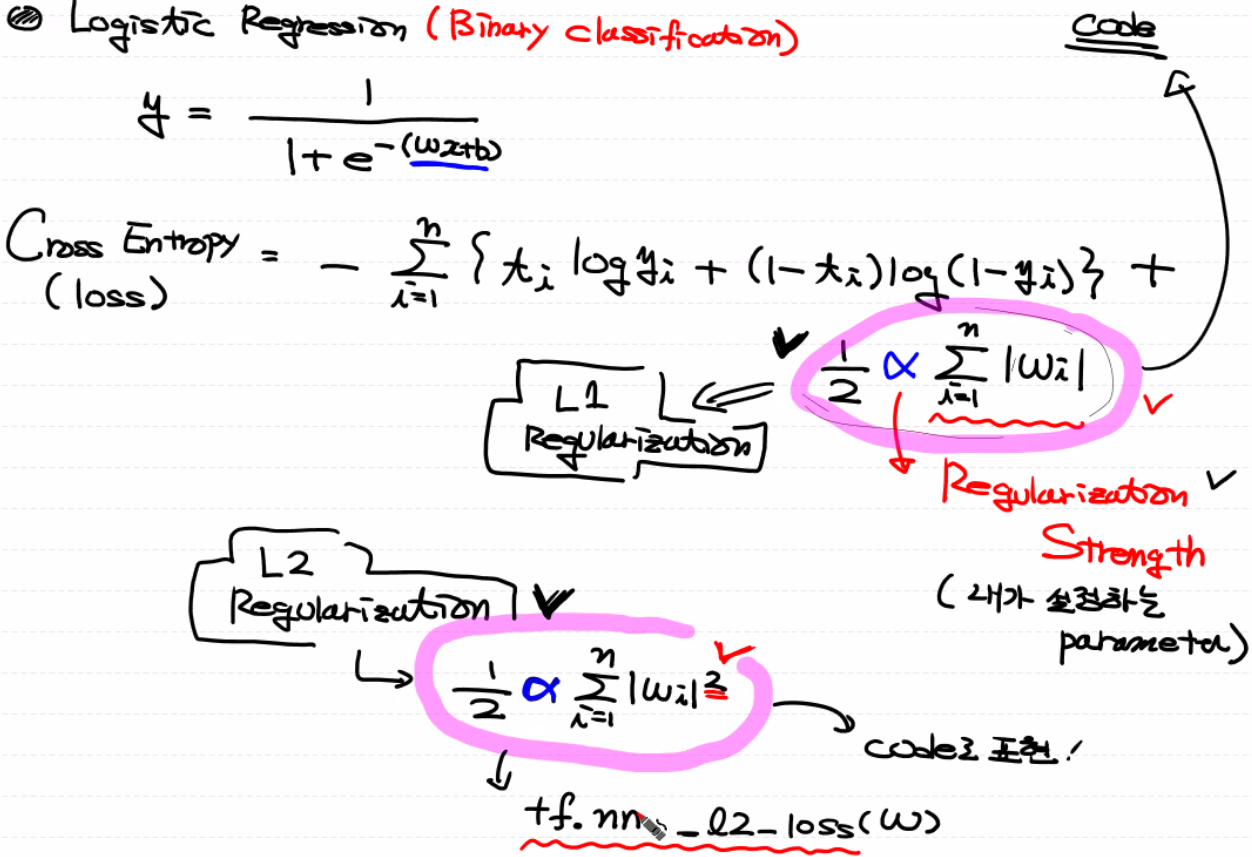 Logistic Regression (Binary classification)
code
y = 1 / (1 + e^-(wx+b))
Cross Entropy (loss) = - Σ_{i=1}^{n} { t_i log y_i + (1 - t_i) log(1 - y_i) } +
1/2 ∝ Σ_{i=1}^{n} |w_i|
L1
Regularization
Regularization
Strength
(내가 설정하는
parameter)
L2
Regularization
1/2 ∝ Σ_{i=1}^{n} |w_i|^2
code로 표현!
tf.nn._l2_loss(w)